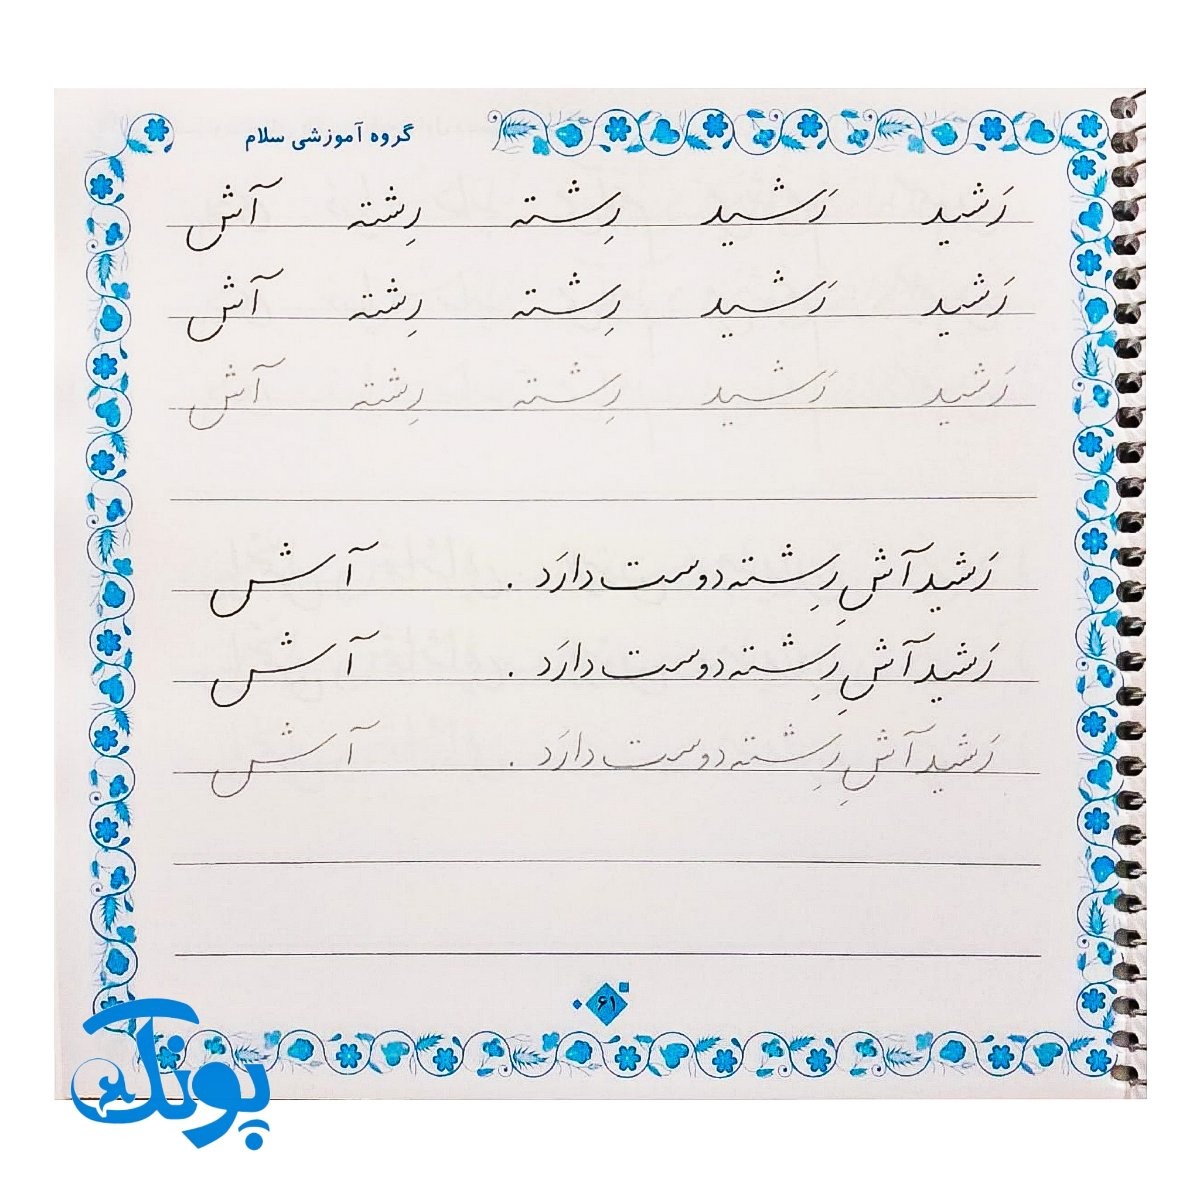 گروه آموزشی سلام
رَشید رَشید رِشته رِشته آش
رَشید رَشید رِشته رِشته آش
رَشید رَشید رِشته رِشته آش
رَشید آشِ رِشته دوست دارَد . آش
رَشید آشِ رِشته دوست دارَد . آش
رَشید آشِ رِشته دوست دارَد . آش
۶۱
پونک